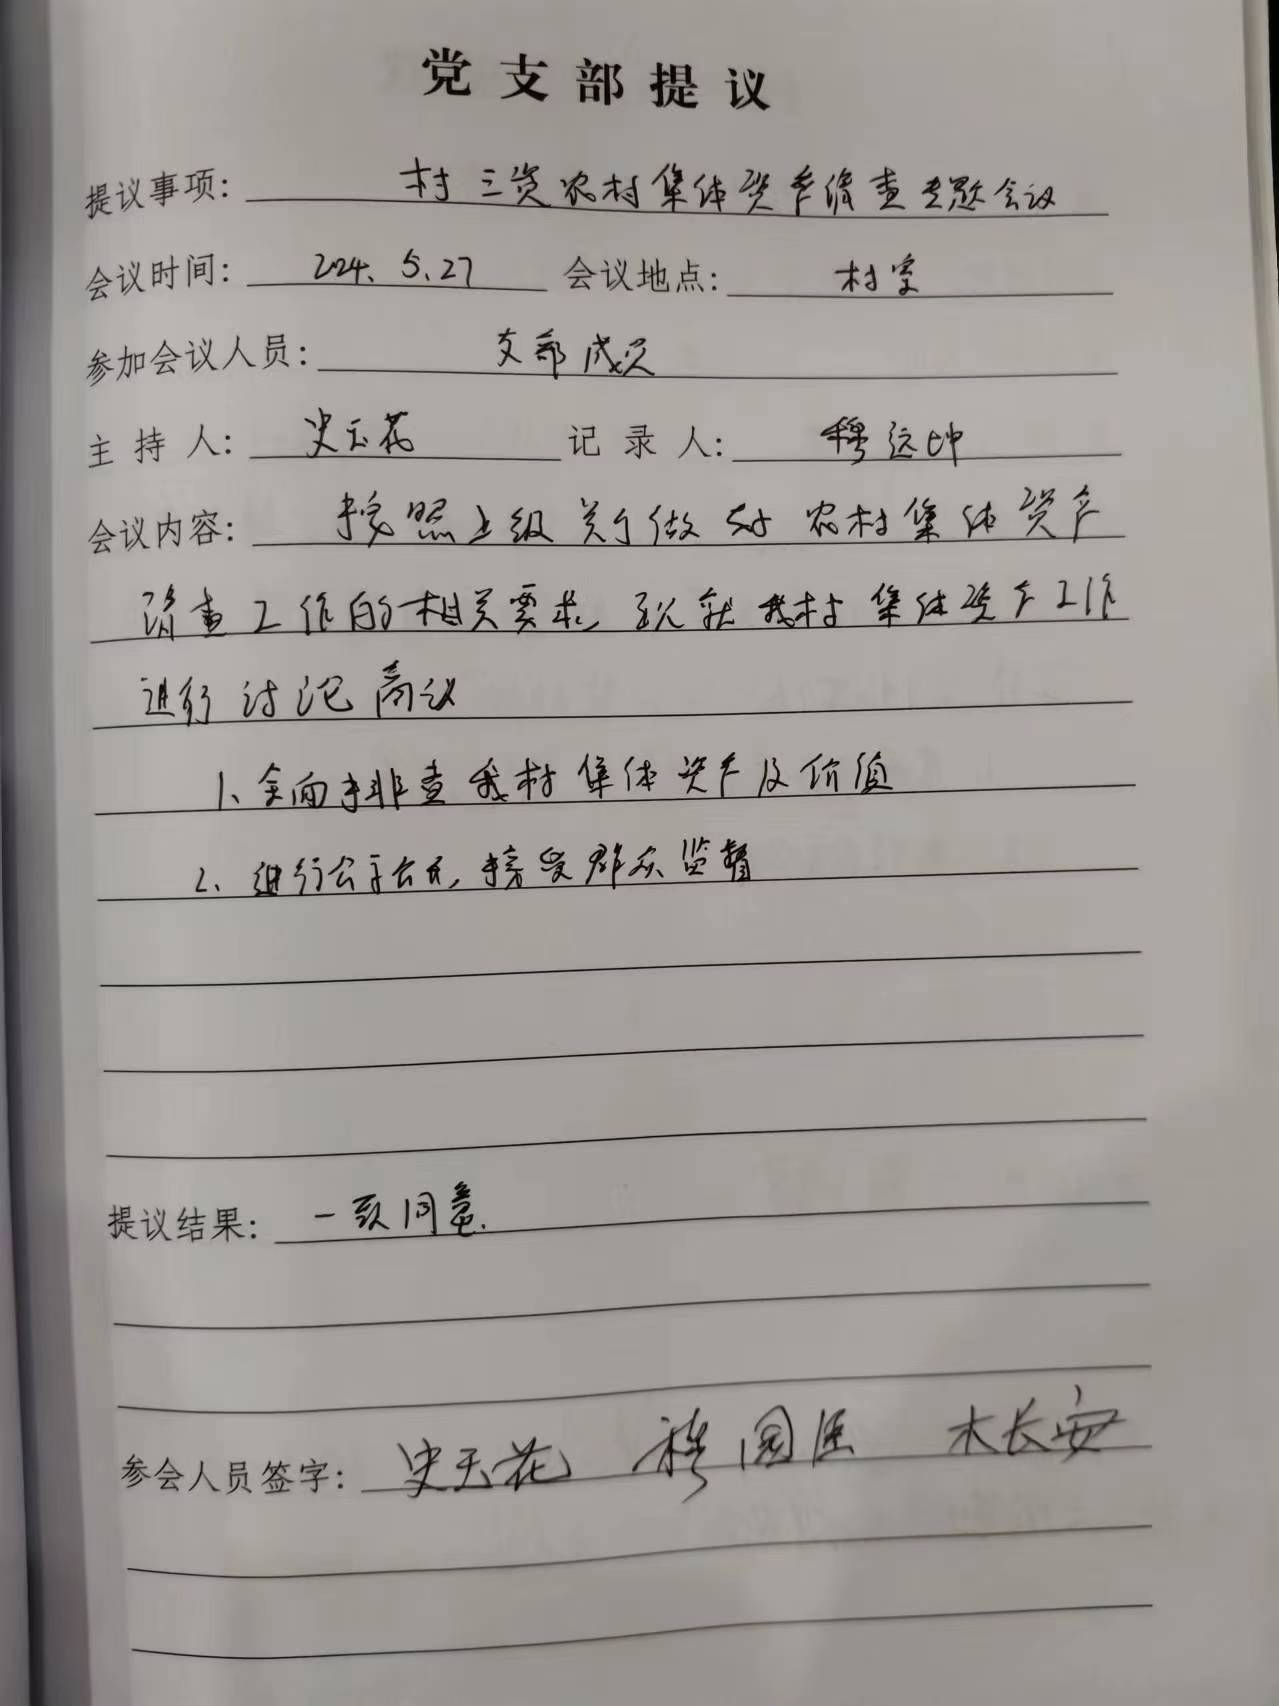 党支部提议
提议事项: 村三资农村集体资产清查专题会议
会议时间: 2024.5.27 会议地点: 村室
参加会议人员: 支部成员
主持人: 史玉花 记录人: 穆远坤
会议内容: 按照上级关于做好农村集体资产
清查工作的相关要求,现就我村集体资产工作
进行讨论商议
1、全面排查我村集体资产及价值
2、进行公示公开,接受群众监督
提议结果: 一致同意.
参会人员签字: 史玉花 穆 木长安